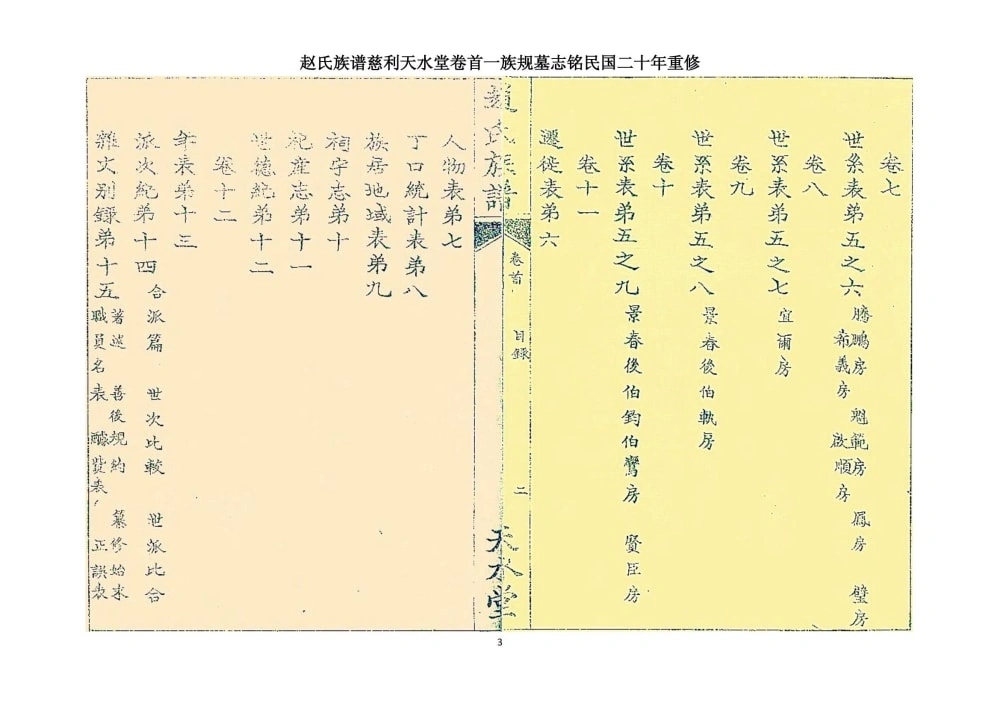 赵氏族谱慈利天水堂卷首一族规墓志铭民国二十年重修
卷七
世系表弟五之六 騰鵬房 希義房 魁範房 啟順房 鳳房 璧房
卷八
世系表弟五之七 宜爾房
卷九
世系表弟五之八 景春後伯軌房
卷十
世系表弟五之九 景春後伯鈞伯鸞房 賢臣房
卷十一
遷徙表弟六
趙氏族譜 卷首 目録 二 天水堂
人物表弟七
丁口統計表弟八
族居地域表弟九
祠宇志弟十
祀產志弟十一
世德紀弟十二
卷十二
年表弟十三
派次紀弟十四 合派篇 世次比較 世派比合
雜文别錄弟十五 著述 職員名表 善後規約 醵貲表 纂修始末 正誤表
3